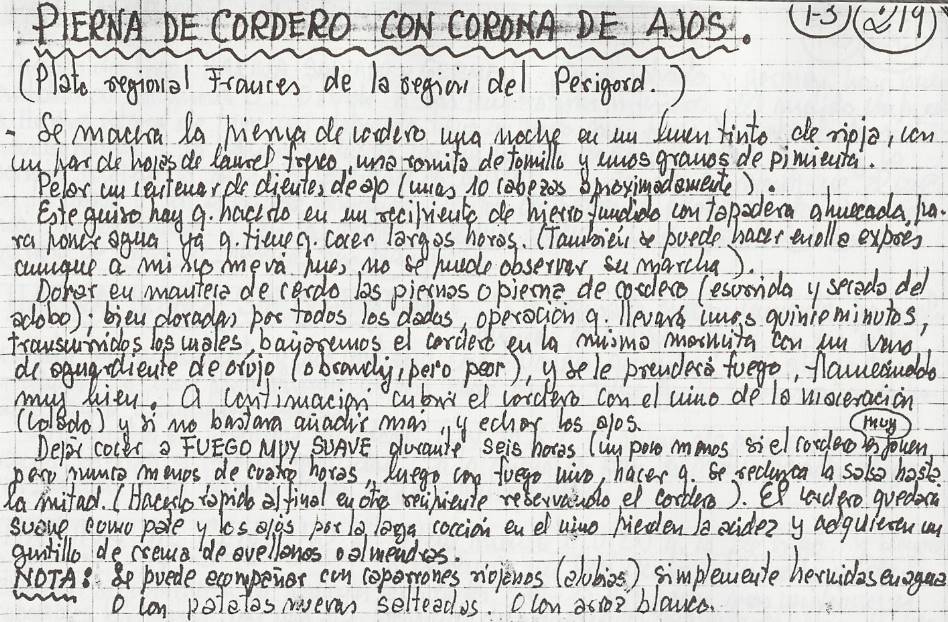 PIERNA DE CORDERO CON CORONA DE AJOS. (1-3) (219)
(Plato regional Frances de la region del Perigord.)
- Se macera la pierna de cordero una noche en un buen tinto de rioja, con
un par de hojas de laurel freco, una ramita de tomillo y unos granos de pimienta.
Pelar un centenar de dientes de ajo (unas 10 cabezas aproximadamente).
Este guiso hay q. hacerlo en un recipiente de hierro fundido con tapadera ahuecada, pa-
ra poner agua ya q. tiene q. cocer largas horas. (También se puede hacer en olla expres
aunque a mi no me va pues no se puede observar su marcha).
Dorar en manteca de cerdo las piernas o pierna de cordero (escurrida y secada del
adobo); bien doradas por todos los lados, operación q. llevará unos quince minutos,
transcurridos los cuales, bañaremos el cordero en la misma marmita con un vaso
de aguardiente de orujo (o brandy, pero peor), y se le prenderá fuego, flameandolo
muy bien. A continuación cubrir el cordero con el vino de la maceración
(colado) y si no bastara añadir mas, y echar los ajos.
Dejar cocer a FUEGO MUY SUAVE durante seis horas (un poco menos si el cordero es muy joven
pero nunca menos de cuatro horas, luego con fuego vivo, hacer q. se reduzca la salsa hasta
la mitad. (Hacerlo rápido al final en otro recipiente reservando el cordero). El cordero quedará
suave como pate y los ajos por la larga cocción en el vino pierden la acidez y adquieren un
gustillo de crema de avellanas o almendras.
NOTA: Se puede acompañar con caparrones riojanos (alubias) simplemente hervidas en agua
O con patatas nuevas salteadas. O con arroz blanco.